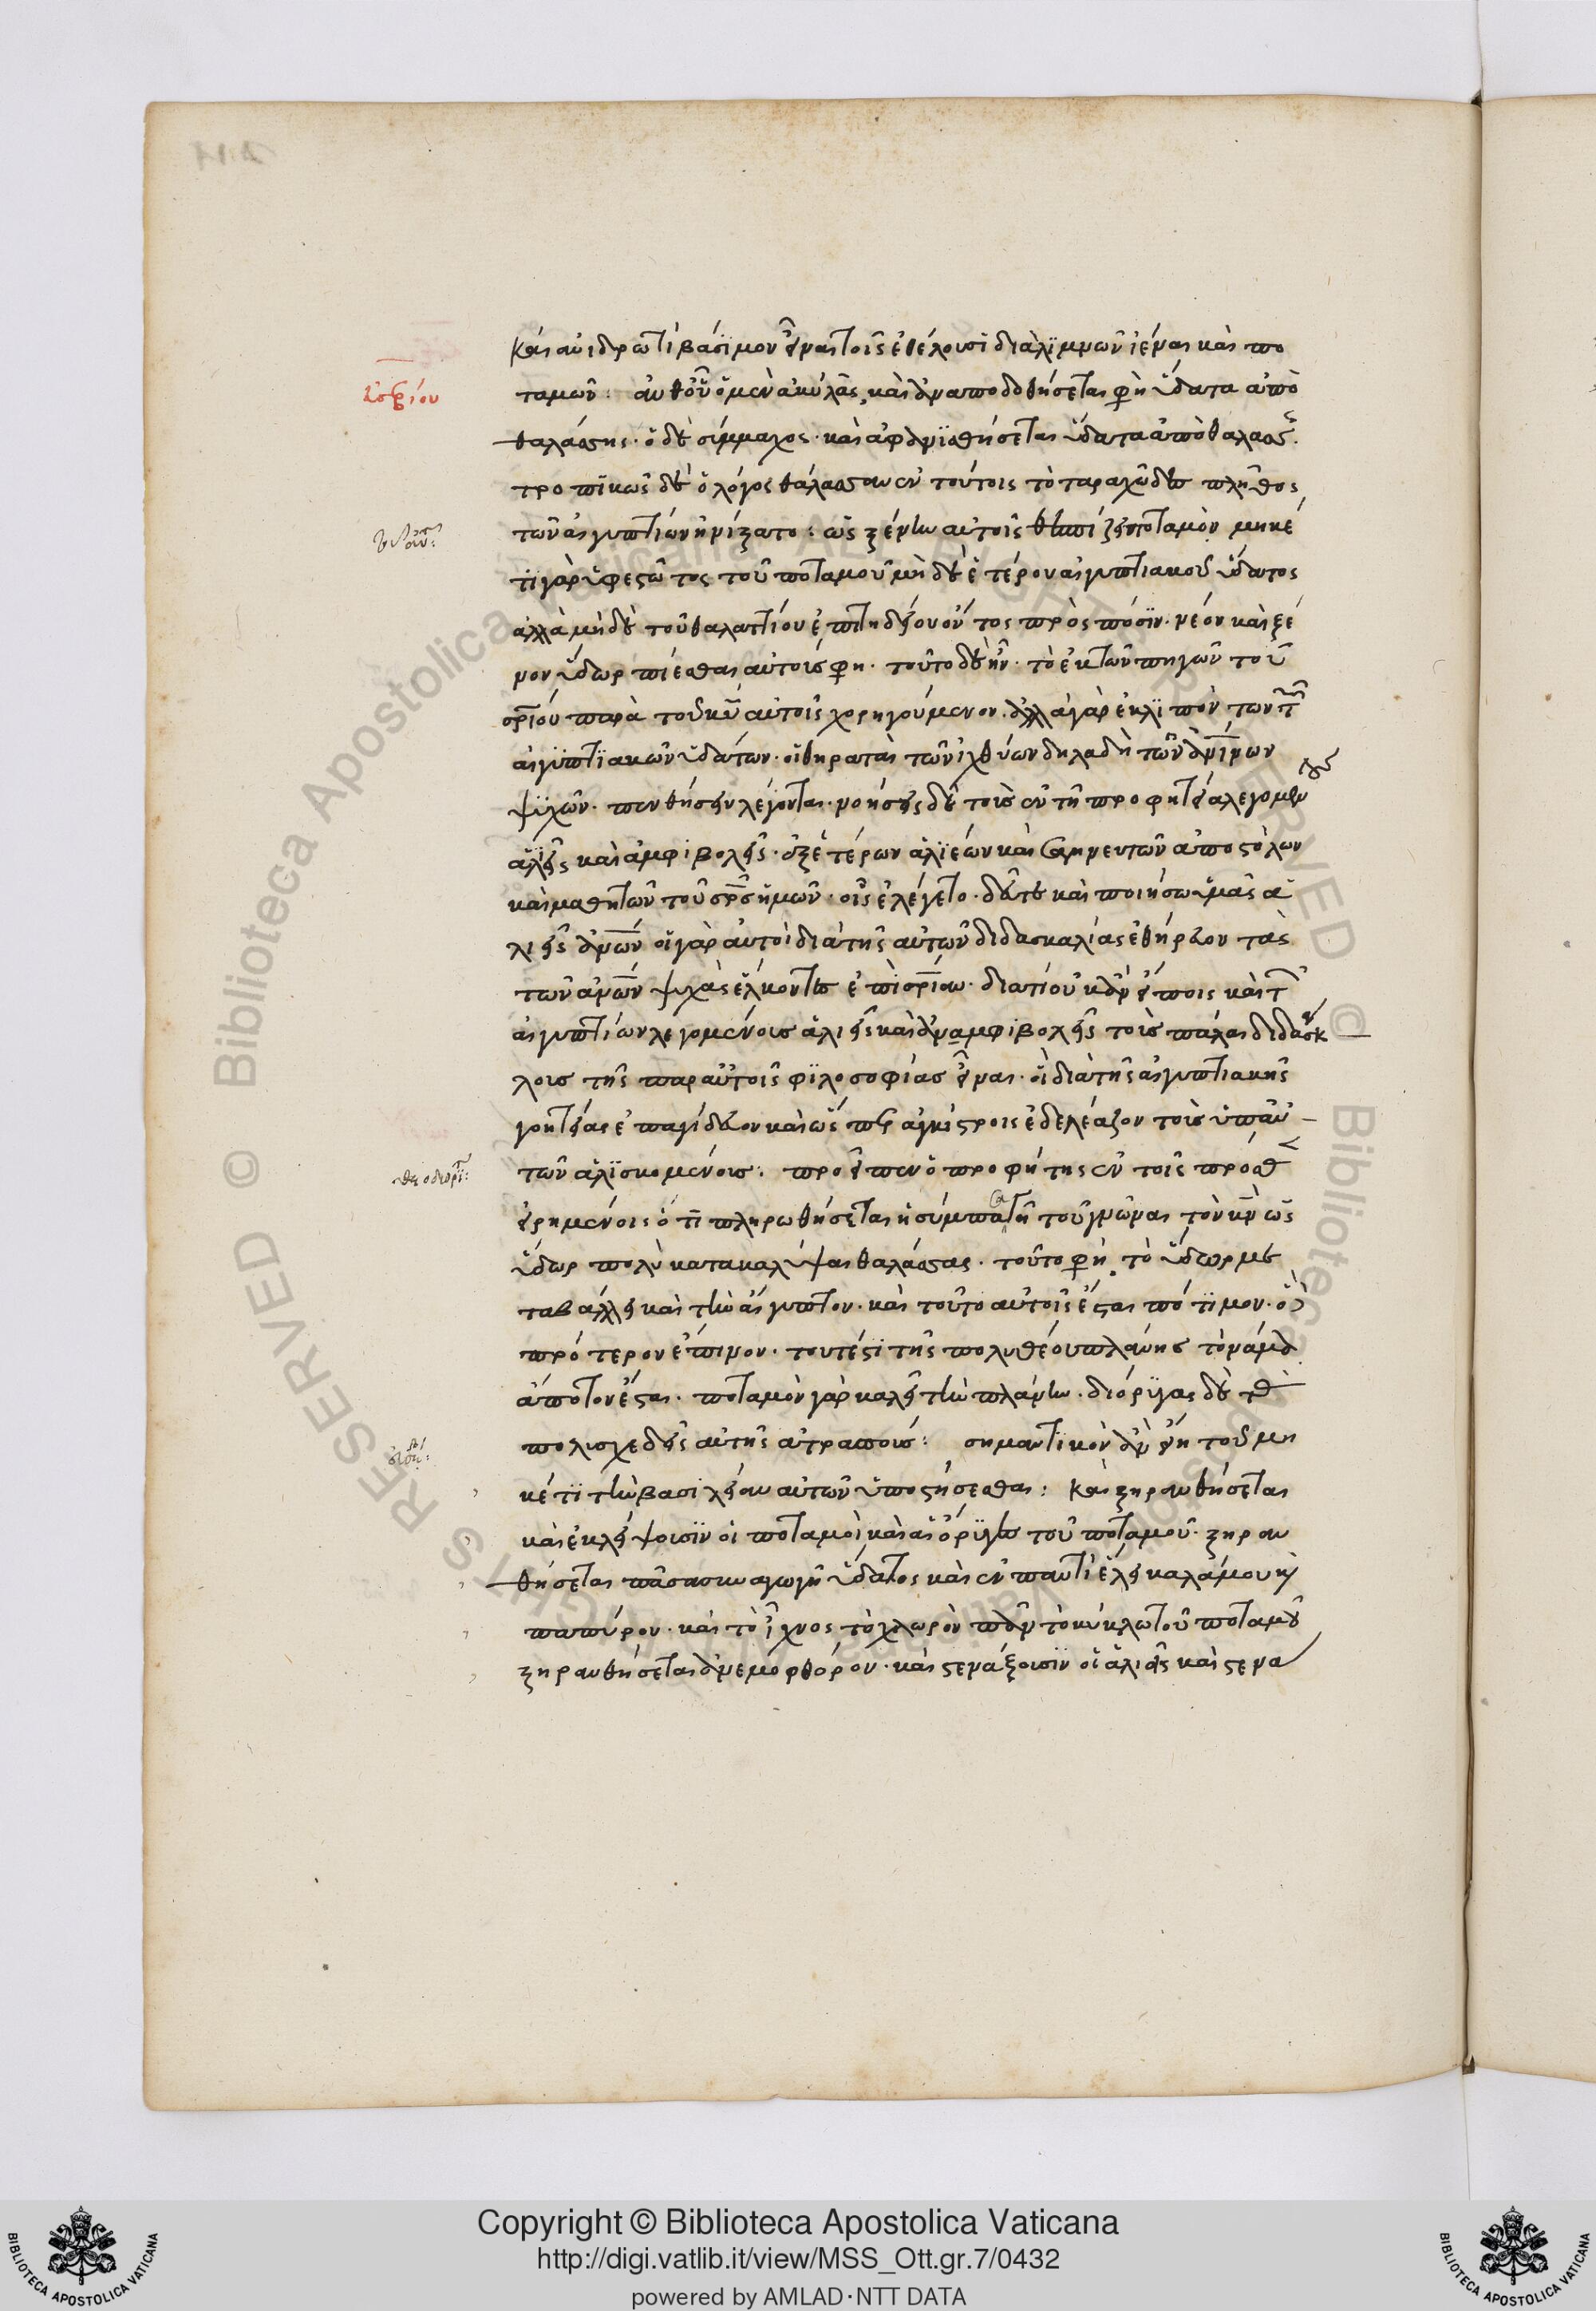 καὶ ἀνιδρωτὶ βάσιμον εἶναι τοῖς ἐθέλουσι διὰ λιμνῶν ἰέναι καὶ πο
ταμῶν : ἀνθ οὗ ὁ μὲν ἀκύλας, καὶ ἀναποδοθήσεται φη ὕδατα ἀπὸ
θαλάσσης · ὁ δὲ σύμμαχος · καὶ ἀφανισθήσεται ὕδατα ἀπὸ θαλάσσ
τροπικῶς δὲ ὁ λόγος θάλασσαν ἐν τούτοις τὸ ταραχῶδες πλῆθος
τῶν αἰγυπτίων ἠνίξατο : ὡς ξένω αὐτοῖς ποταμὸν μηκέ
τι γὰρ ὑφεστῶτος τοῦ ποταμοῦ μὴ δὲ ἑτέρου αἰγυπτιακοῦ ὕδατος
ἀλλὰ μὴ δὲ τοῦ θαλαττίου ἐπιτηδείου ὄντος πρὸς πόσιν · νέον καὶ ξέ
νον ὕδωρ πίεσθαι αὐτοῖς φη · τοῦτο δὲ ἦν · τὸ ἐκ τῶν πηγῶν τοῦ
σρίου παρὰ τοῦ κυ αὐτοῖς χορηγούμενον · ἀλλὰ γὰρ ἐκλιπόντων τ
αἰγυπτιακῶν ὑδάτων · οἱ θηραταὶ τῶν ἰχθύων δηλαδὴ τῶν ἀνίνων
ψυχῶν · πενθήσειν λέγονται · νοήσεις δὲ τοῖς ἐν τῇ προφητεία λεγομέν
ἁλιεῖς καὶ ἀμφιβολεῖς · ἐξ ἑτέρων ἁλιέων καὶ σαγηνευτῶν ἀποστόλων
καὶ μαθητῶν τοῦ σρς ἡμῶν · οἷς ἐλέγετο · δεῦτε καὶ ποιήσω ὑμᾶς ἁ
λιεῖς ἀνων οἱ γὰρ αὐτοὶ διὰ τῆς αὐτῶν διδασκαλίας ἐθήρευον τὰς
τῶν ἀνων ψυχὰς ἕλκοντες ἐπὶ σρίαν · διατί οὐκ ἂν εἴποις καὶ τ
αἰγυπτίων λεγομένους ἁλιεῖς καὶ ἀναμφιβολεῖς τοὺς πάλαι διδασκ
λους τῆς παραὐτοῖς φιλοσοφίας εἶναι · οἳ διὰ τῆς αἰγυπτιακῆς
γοητείας ἐπαγίδευον καὶ ὥσπερ ἀγκίστροις ἐδελέαζον τοὺς ὑπ αὐ
τῶν ἁλισκομένους : προεῖπεν ὁ προφήτης ἐν τοῖς πρόσθ
εἰρημένοις ὅτι πληρωθήσεται ἡ σύμπασα γῆ τοῦ γνῶναι τὸν κν ὡς
ὕδωρ πολὺ κατακαλύψαι θαλάσσας · τοῦτο φη τὸ ὕδωρ με
ταβάλλει καὶ τὴν αἴγυπτον · καὶ τοῦτο αὐτοῖς ἔσται πότιμον · ὃ
πρότερον ἔπινον · τουτέστι τῆς πολυθέου πλάνης τὸ νάμα
ἄποτον ἔσται · ποταμὸν γὰρ καλεῖ τὴν πλάνην · διόρυγας δὲ τ
πολυσχεδεῖς αὐτῆς ἀτραπούς : σημαντικὸν ἂν εἴη τοῦ μη
κέτι τὴν βασιλείαν αὐτῶν ὑποστήσεσθαι : Καὶ ξηρανθήσεται
καὶ ἐκλείψουσιν οἱ ποταμοὶ καὶ αἱ διόρυγες τοῦ ποταμοῦ · ξηραν
θήσεται πᾶσα συναγωγὴ ὕδατος καὶ ἐν παντὶ ἕλει καλάμου κ
παπύρου · καὶ τὸ ἄχι τὸ χλωρὸν πᾶν τὸ κύκλω τοῦ ποταμοῦ
ξηρανθήσεται ἀνεμόφθορον · καὶ στενάξουσιν οἱ ἁλιεῖς καὶ στενα
Copyright © Biblioteca Apostolica Vaticana
http://digi.vatlib.it/view/MSS_Ott.gr.7/0432
powered by AMLAD·NTT DATA
BIBLIOTECA APOSTOLICA VATICANA
BIBLIOTECA APOSTOLICA VATICANA